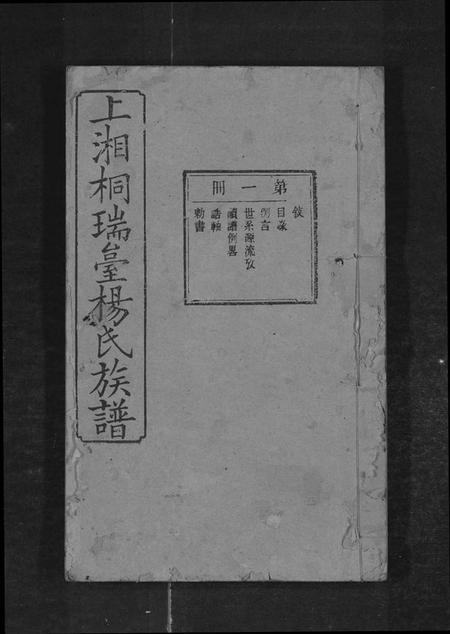 上湘桐瑞臺楊氏族譜
第一冊
敘
目彔
例言
世系源流攷
讀譜例畧
誥軸
勅書